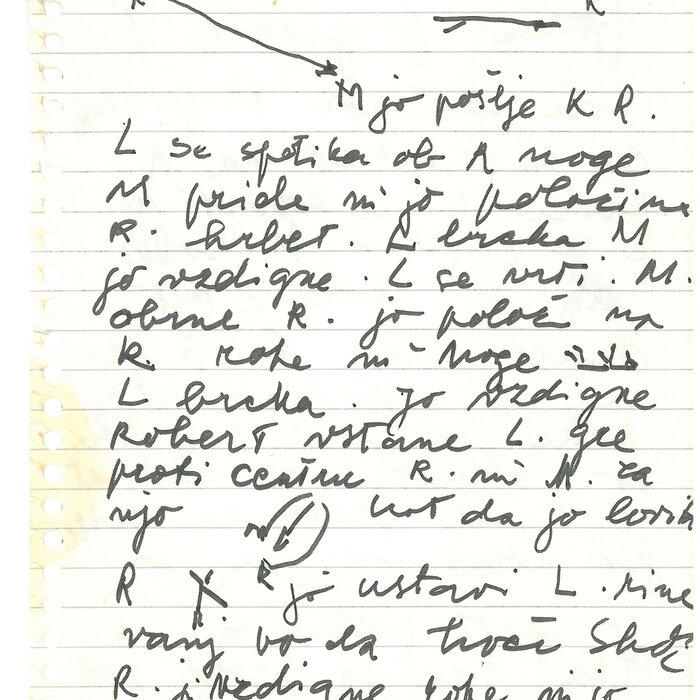 R R
M jo pošlje K R.
L se spotika ob R noge
M pride in jo položi na
R. hrbet. L brcka M
jo vzdigne. L se vrti. M.
obrne R. jo polož na
R. roke in noge
L brcka. jo vzdigne
Robert vstane L. gre
proti centru R. in M. za
njo kot da jo lovita
R R jo ustavi L. rine
vanj ko da hoče
R. jo vzdigne roke in jo